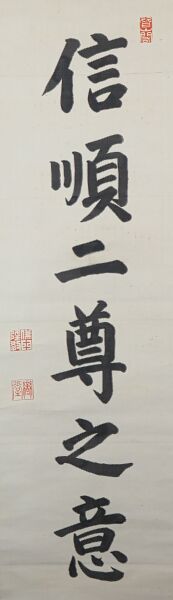 信順二尊之意